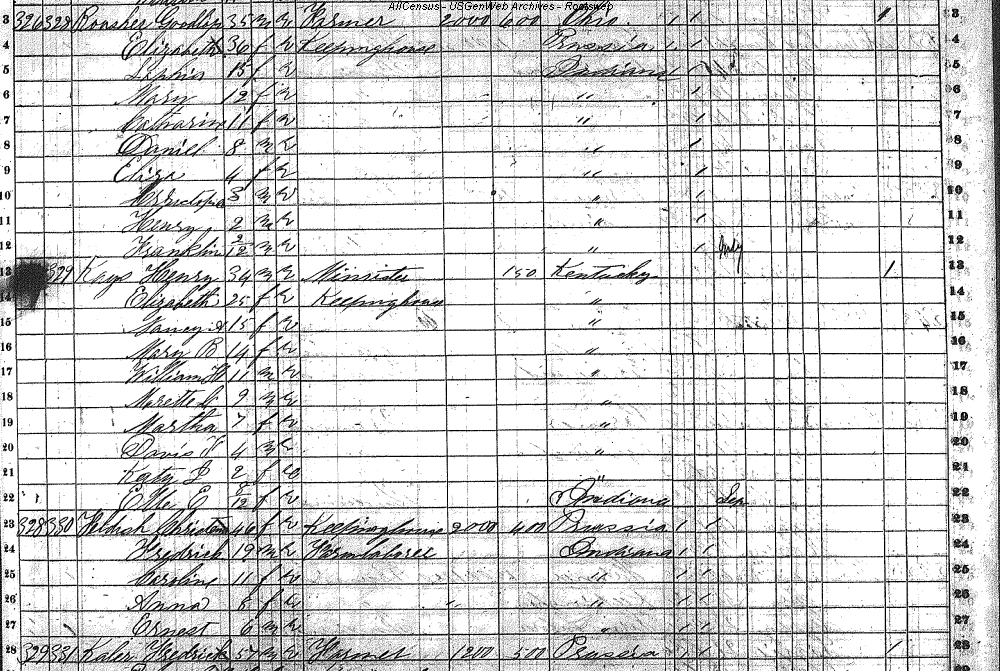 AllCensus - USGenWeb Archives - Rootsweb
3 326 328 35 m W Farmer 2000 600 Ohio 1 1 1 3
4 Elizabeth 36 f W Keepinghouse Prussia 1 1 4
5 Sophia 15 f W Indiana 1 5
6 Mary 12 f W " 1 6
7 Catharine 11 f W " 1 7
8 Daniel 8 m W " 1 8
9 Eliza 4 f W " 1 9
10 3 m W " 1 10
11 Henry 2 m W " 1 11
12 Franklin m W " 1 July 12
13 329 Kays Henry 34 m W Minister 150 Kentucky 1 13
14 Elizabeth 25 f W Keepinghouse " 14
15 Nancy 15 f W " 15
16 Mary B 14 f W " 16
17 William H 11 m W " 17
18 9 m W " 18
19 Martha 7 f W " 19
20 Davis 4 m W " 20
21 Katy 2 f W " 21
22 E f W Indiana Sep 22
23 328 330 46 f W Keepinghouse 2000 400 Prussia 1 1 23
24 Fredrick 19 m W Farmlaborer Indiana 1 1 24
25 Caroline 11 f W " 1 1 25
26 Anna 8 f W " 1 1 26
27 Ernest 6 m W " 1 1 27
28 329 331 Kaler Fredrick 57 m W Farmer 1200 500 Prussia 1 1 1 28